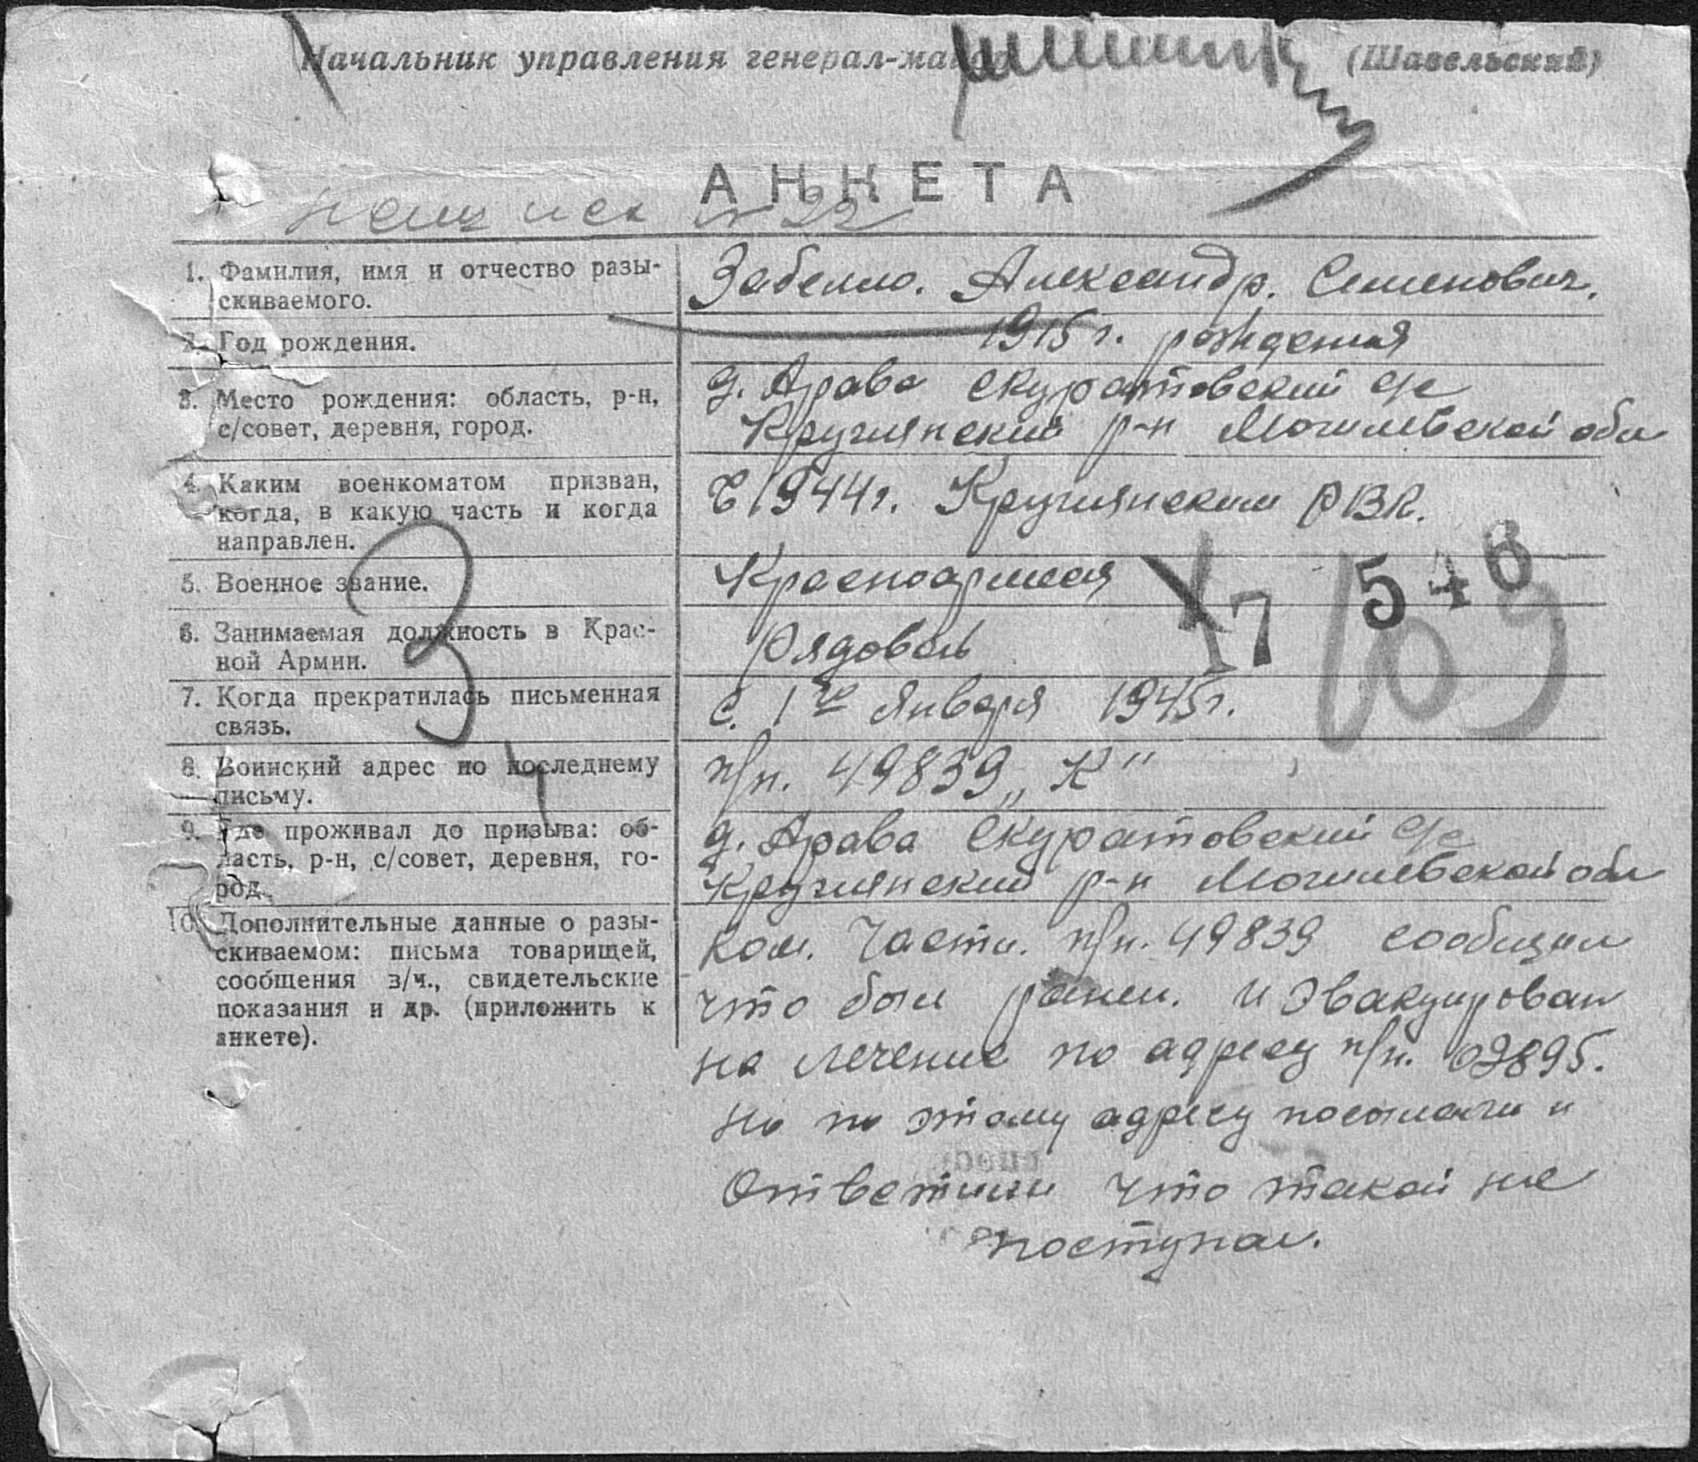 Начальник управления генерал-майор (Шавельский)
АНКЕТА
№ 22
1. Фамилия, имя и отчество разы-
скиваемого.
Забелло. Александр. Семенович.
2. Год рождения.
1915 г. рождения
3. Место рождения: область, р-н,
с/совет, деревня, город.
д. Арава Скуратовский с/с
Круглянский р-н Могилевской обл
4. Каким военкоматом призван,
когда, в какую часть и когда
направлен.
В 1944 г. Круглянским РВК.
5. Военное звание.
Красноармеец
6. Занимаемая должность в Крас-
ной Армии.
Рядовой
17 546
169
7. Когда прекратилась письменная
связь.
с. 1го января 1945 г.
8. Воинский адрес по последнему
письму.
п/п. 49839 „К"
9. Где проживал до призыва: об-
ласть, р-н, с/совет, деревня, го-
род.
д. Арава Скуратовский с/с
Круглянский р-н Могилевской обл
10. Дополнительные данные о разы-
скиваемом: письма товарищей,
сообщения з/ч., свидетельские
показания и др. (приложить к
анкете).
Ком. Части. п/п. 49839 сообщил
что был ранен. и эвакуирован
на лечение по адресу п/п. 02895.
но по этому адресу посылали и
Ответили что такой не
поступал.
3